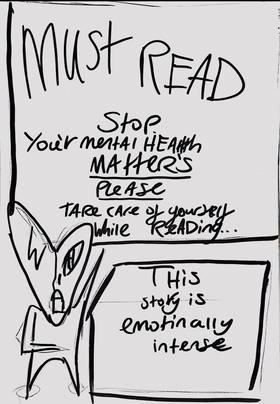 MUST READ
STOP
Your mental HEAlth
MATTER'S
PLEASE
TAKE CARE of yourself
While READing...
THis
story is
emotinally
intense